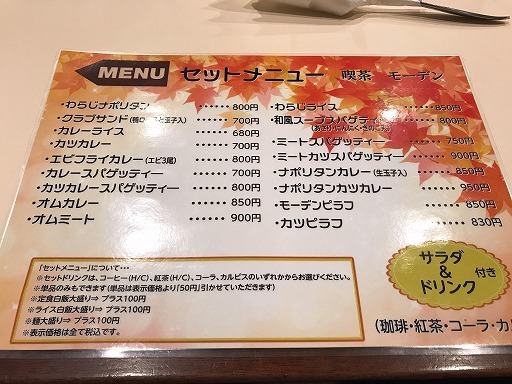 MENU セットメニュー 喫茶 モーデン
・わらじナポリタン ・・・・・・ 800円
・クラブサンド(と玉子入) ・・・・・ 700円
・カレーライス 680円
・カツカレー ・・・・・・ 700円
・エビフライカレー(エビ3尾) 800円
・カレースパゲッティー ・・・・・ 700円
・カツカレースパゲッティー 800円
・オムカレー ・・・・・・ 850円
・オムミート ・・・・・・ 900円
・わらじライス ・・・・・・ 850円
・和風スープスパゲティー ・・・・・ 800円
(あさり・にんにく・きのこ)
・ミートスパゲッティー ・・・・・ 750円
・ミートカツスパゲッティー ・・・・ 900円
・ナポリタンカレー(生玉子入) ・・・・ 850円
・ナポリタンカツカレー ・・・・・ 950円
・モーデンピラフ ・・・・・・ 850円
・カツピラフ ・・・・・・ 830円
サラダ
&
ドリンク
付き
(珈琲・紅茶・コーラ・カル
「セットメニュー」について・・・
※セットドリンクは、コーヒー(H/C)、紅茶(H/C)、コーラ、カルピスのいずれかからお選びください。
※単品のみもできます(単品は表示価格より「50円」引かせていただきます)
※定食白飯大盛り⇒ プラス100円
※ライス白飯大盛り⇒ プラス100円
※麺大盛り⇒ プラス100円
※表示価格は全て税込です。